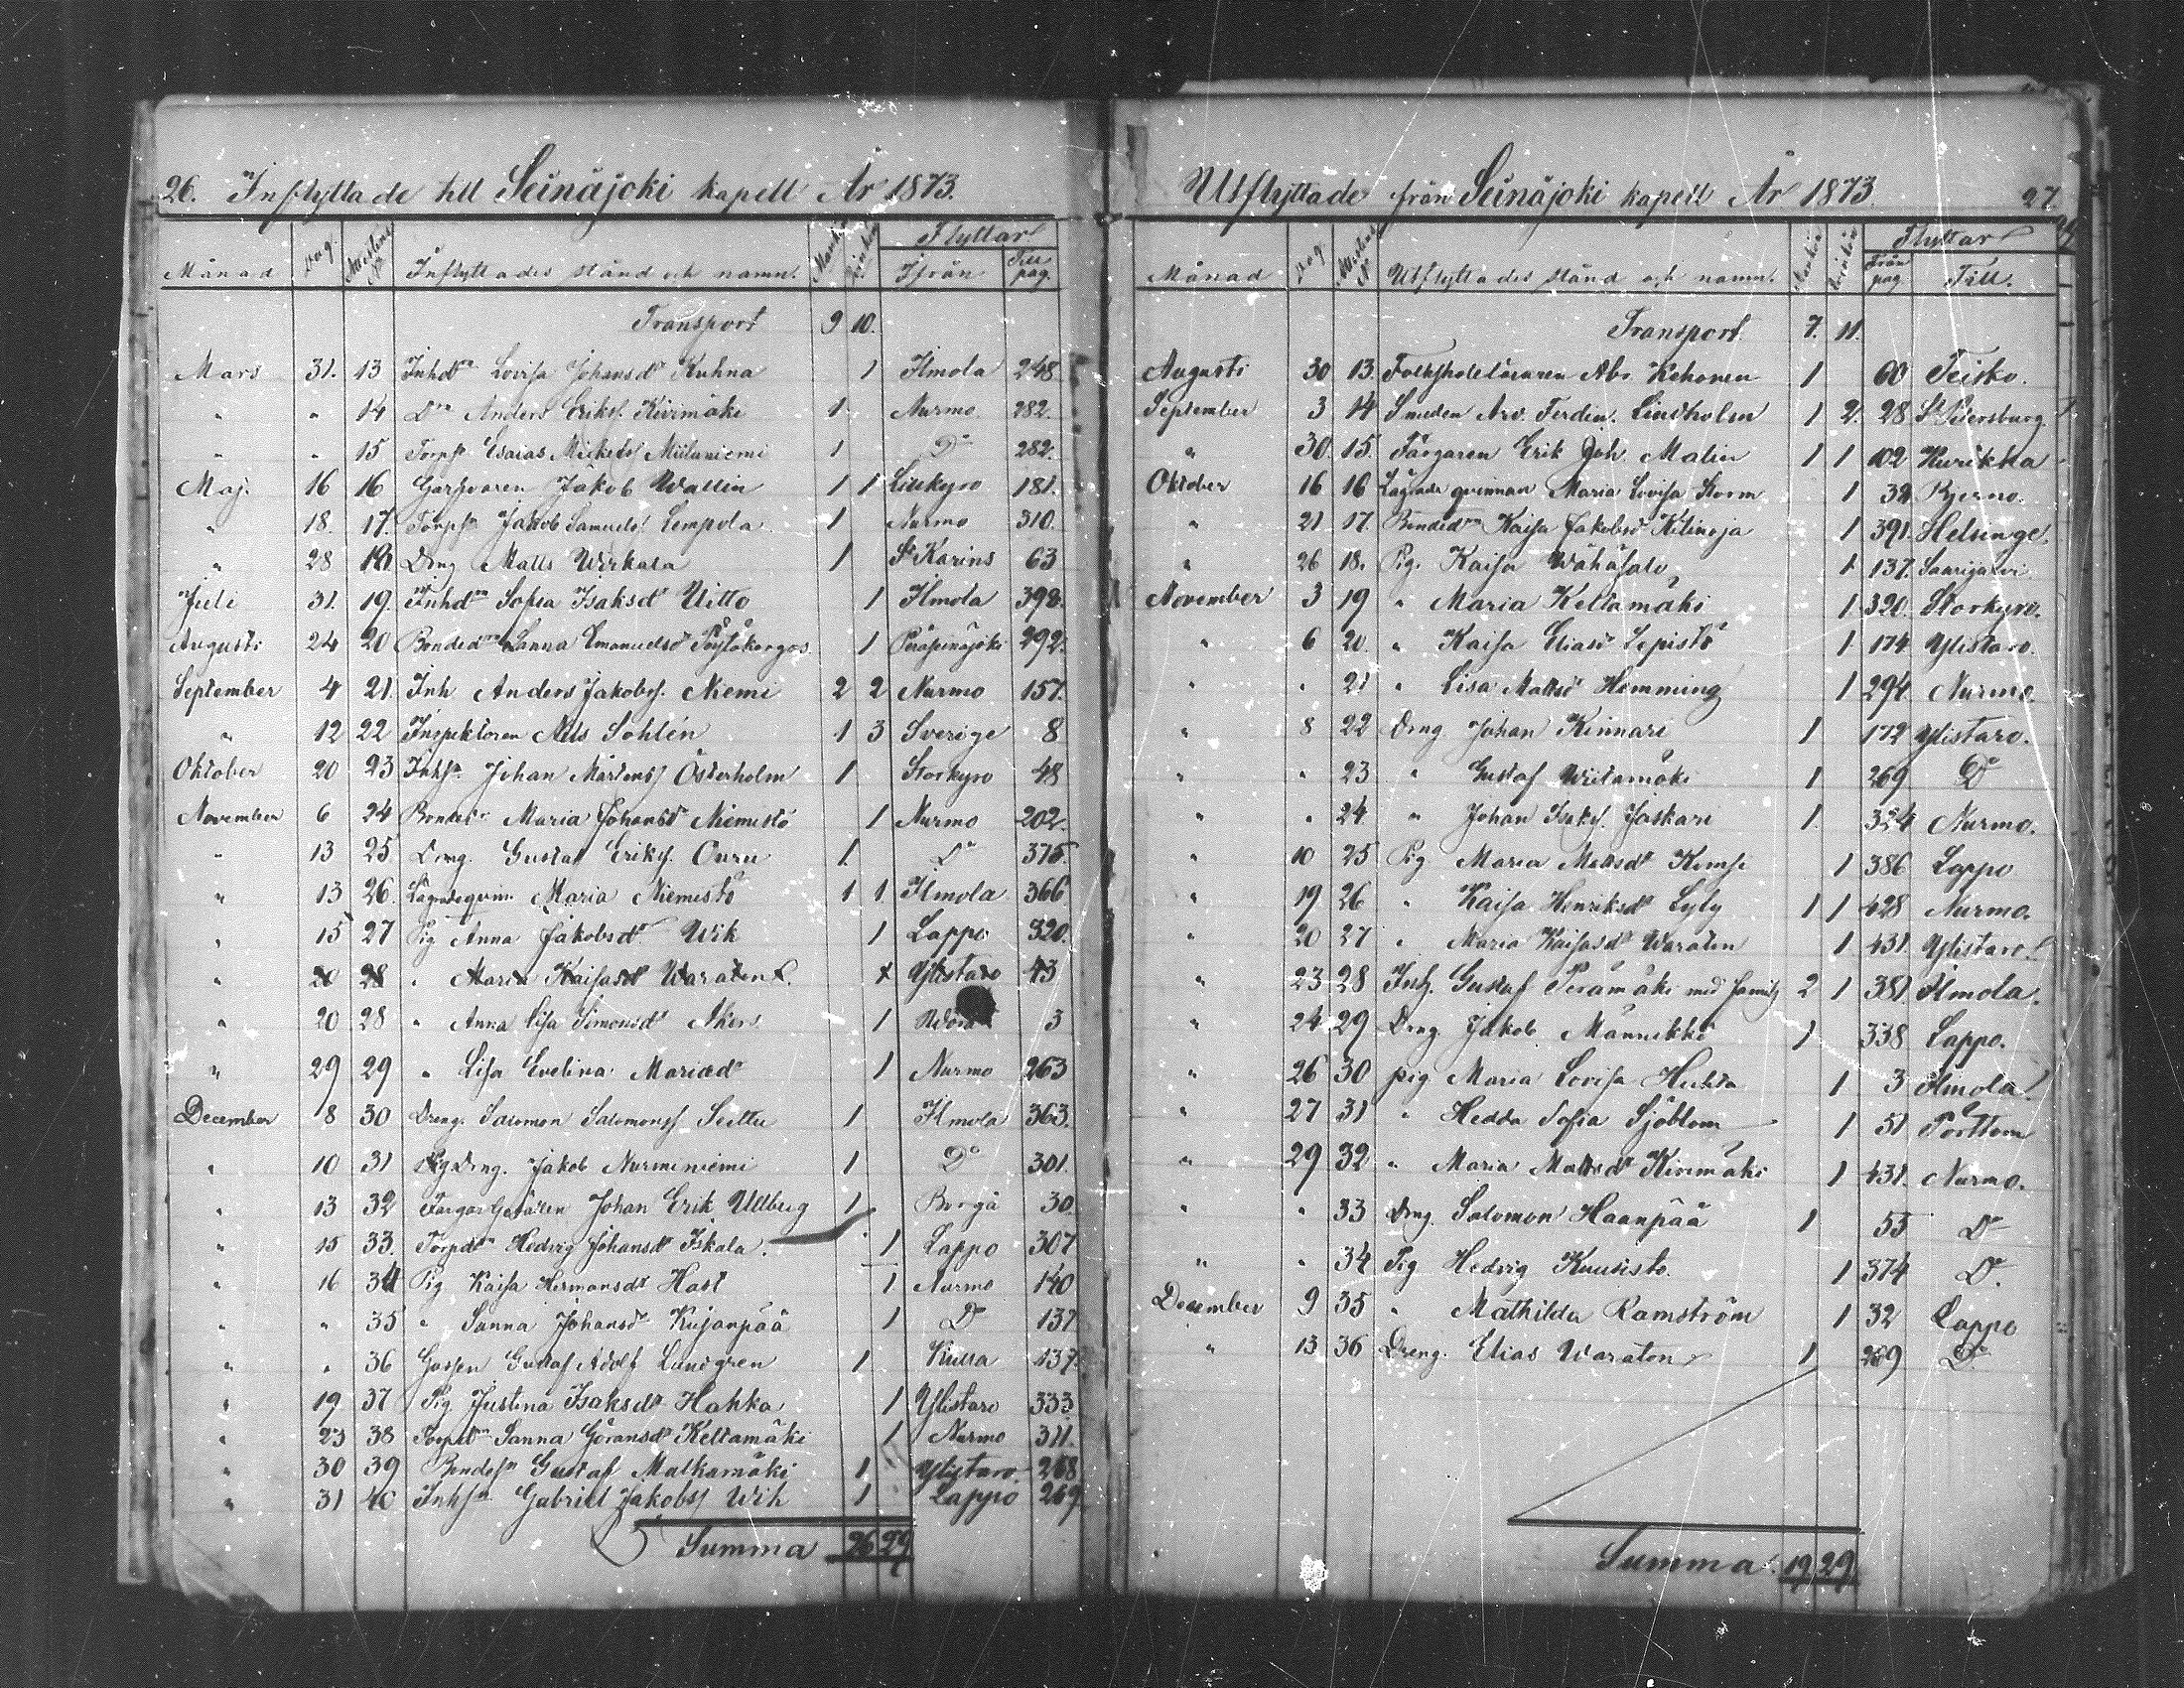 26. Inflyttade till Seinäjoki kapell År 1873.
Månad Dag Attestens No Inflyttades stånd och namn. Mankön Qvinkön Flyttar Ifrån Till pag.
Transport 9 10.
Mars 31. 13 Inhdr Lovisa Johansdr Kuhna 1 Ilmola 248
" " 14 Do Anders Eriks. Kivimäki 1 Nurmo 282.
" " 15 Torpr Esaias Mickelss Miilumiemi 1 Do 282.
Maj. 16 16 Garfvaren Jakob Wallin 1 1 Lillkyro 181.
" 18. 17. Torpsn Jakob Samuels. Lempola 1 Nurmo 310.
" 28 18 Dng Matts Wirkala 1 St Karins 63
Juli 31. 19. Inhdr Sofia Isaksdr Uitto 1 Ilmola 398.
Augusti 24 20 Bondedr Sanna Emanuelsdr 1 Peräseinäjoki 292.
September 4 21. Inh Anders Jakobss. Niemi 2 2 Nurmo 157.
" 12 22 Inspektoren Nils Sohlén 1 3 Sverige 8
Oktober 20 23 Inhsn Johan Mårtenss Österholm 1 Storkyro 48
November 6 24 Bondedr Maria Johansdr Niemistö 1 Nurmo 202.
" 13 25 Dng. Gustaf Eriks. Ouru 1. Do 375.
" 13 26. Lägradeqvin. Maria Niemistö 1 1. Ilmola 366
" 15 27 Pig Anna Jakobsdr Wik 1 Lappo 320.
" 20 28 " Maria Kaisasdr Waraten 1 Ylistaro 43
" 20 28 " Anna Lisa Simonsdr Åkers 1 Wörå 3
" 29 29 " Lisa Evelina Mariædr 1 Nurmo 263
December 8 30 Dreng. Salomon Salomonss Seittu 1 Ilmola 363.
" 10 31 Dng. Jakob Nurminiemi 1 Do 301.
" 13 32 Färgargesällen Johan Erik Ullberg 1 Borgå 30
" 15 33. Torpdr Hedvig Johansdr Iskala. 1 Lappo 307
" 16 34 Pig Kaisa Hermansdr Hast 1 Nurmo 140
" " 35 " Sanna Johansdr Kujanpää 1 Do 137
" " 36 Gossen Gustaf Adolf Lundgren 1 137.
" 19 37 Pig Justina Isaksdr Hahka 1 Ylistaro 333
" 23 38 Torpdr Sanna Göransdr Keltamäki 1 Nurmo 311.
" 30 39 Bondesn Gustaf Malkamäki 1 Ylistaro 268
" 31 40 Inhsn Gabriel Jakobss Wik 1 Lappo 269
Summa 26 29
Utflyttade från Seinäjoki kapell År 1873. 27
Månad Dag Attestens No Utflyttades stånd och namn. Mankön Qvinkön Flyttar Från pag Till.
Transport. 7. 11.
Augusti 30 13. Folkskoleläraren Abr. Kehonen 1 60 Teisko.
September 3 14 Smeden Arv. Ferdin. Lindholm 1 2. 28 St Petersburg
" 30. 15. Färgaren Erik Joh. Malin 1 1 102 Kurikka
Oktober 16 16 Lägrade qvinnan Maria Lovisa Storm 1 32 Bjerno.
" 21 17. Bondedr Kaisa Jakobsdr Kitinoja 1 391. Helsinge.
" 26 18. Pig. Kaisa Wähäsalo 1 137. Saarijärvi
November 3 19 " Maria Keltamäki 1 320. Storkyro.
" 6 20. " Kaisa Eliasdr Lepistö 1 174 Ylistaro.
" " 21 " Lisa Mattsdr Hemming 1 294. Nurmo.
" 8 22 Dng Johan Kinnari 1 172 Ylistaro.
" " 23 " Gustaf Wiitamäki 1 269 Do
" " 24. " Johan Isaks. Jaskari 1. 324 Nurmo.
" 10 25 Pig Maria Mattsdr Kimsi 1 386 Lappo
" 19 26 " Kaisa Henriksdr Lyly 1 1 428 Nurmo.
" 20 27 " Maria Kaisasdr Waraten 1. 431. Ylistaro.
" 23 28 Inh. Gustaf Perämäki med familj 2 1 381 Ilmola.
" 24 29 Dng Jakob Männikkö 1 338 Lappo.
" 26 30 pig Maria Lovisa Huhta 1 3 Ilmola.
" 27 31 " Hedda Sofia Sjöblom 1 51 Pörttom
" 29 32 " Maria Mattsdr Kivimäki 1 431. Nurmo.
" " 33 Dng. Salomon Haanpää 1 53 Do
" " 34 Pig Hedvig Kuusisto. 1 374 Do.
December 9 35 " Mathilda Ramström 1 32 Lappo
" 13 36 Dreng. Elias Waraton 1 269 Do
Summa. 19. 29.